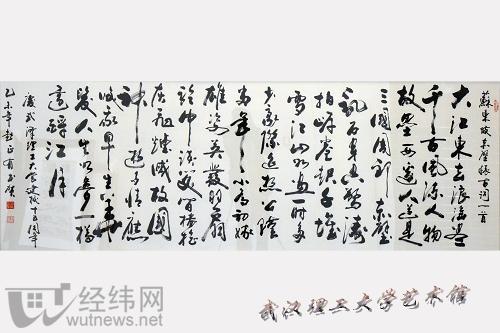 蘇東坡赤壁懷古词一首
大江東去浪淘盡
千古風流人物
故壘西邊人道是
三國周郎赤壁
亂石穿空驚濤
拍岸卷起千堆
雪江山如画一時多
少豪傑遥想公瑾
當年小喬初嫁
雄姿英發羽扇
綸巾談笑間檣櫓
灰飛煙滅故國
神遊多情應
笑我早生華
髮人生如夢一樽
還酹江月
慶武漢理工大學建校十五周年
乙未年
经纬网
wutnews.net
武汉理工大学艺术馆